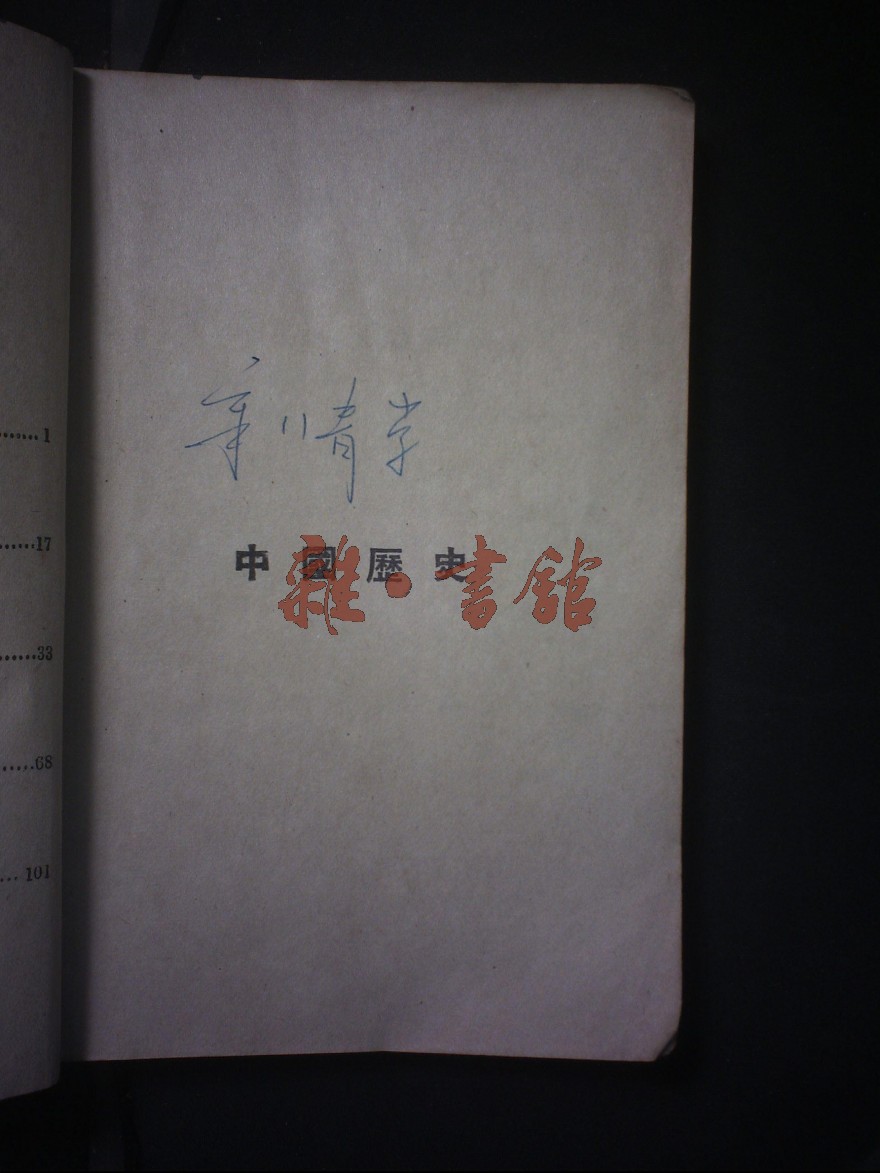 中國歷史
雜·書館
1
17
33
68
101